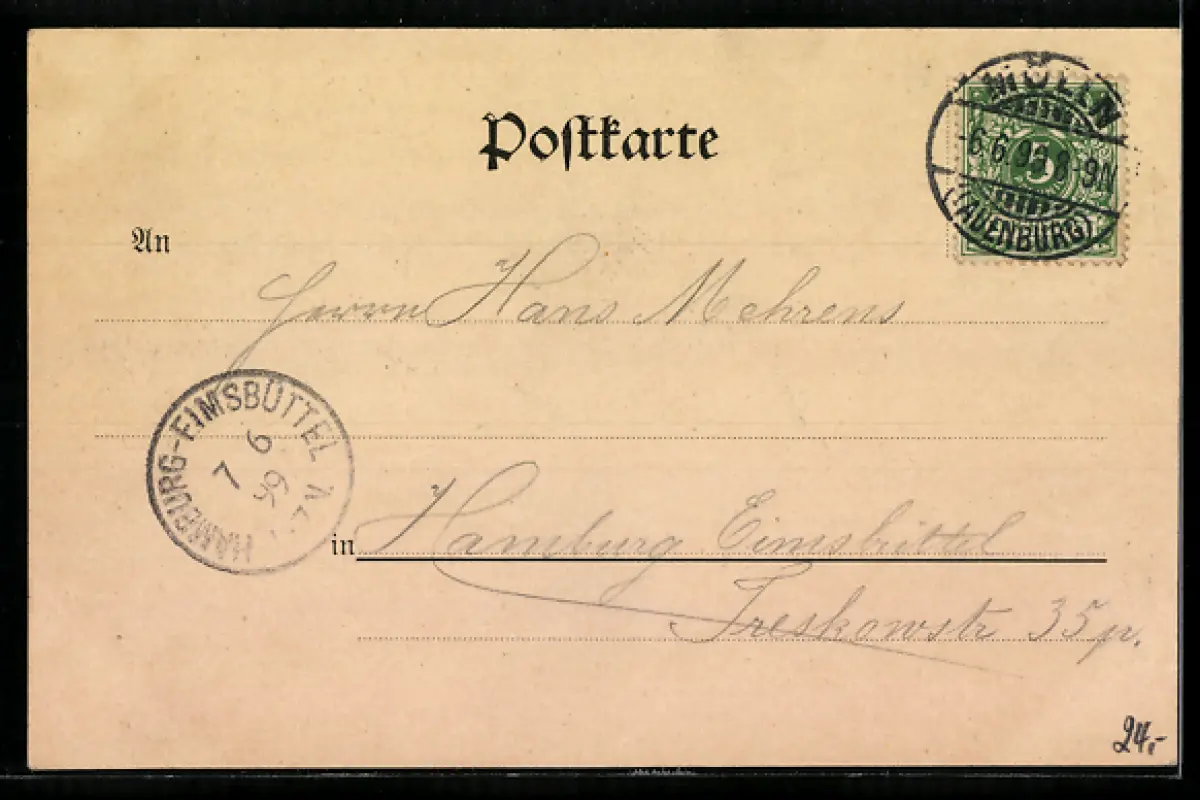 Postkarte
MÖLLN
-6.6.99 8-9N
(LAUENBURG)
5
An
Herrn Hans Mehrens
HAMBURG-EIMSBÜTTEL
7 6
99
N.
in Hamburg Eimsbüttel
Treskowstr 35 p.
24,-